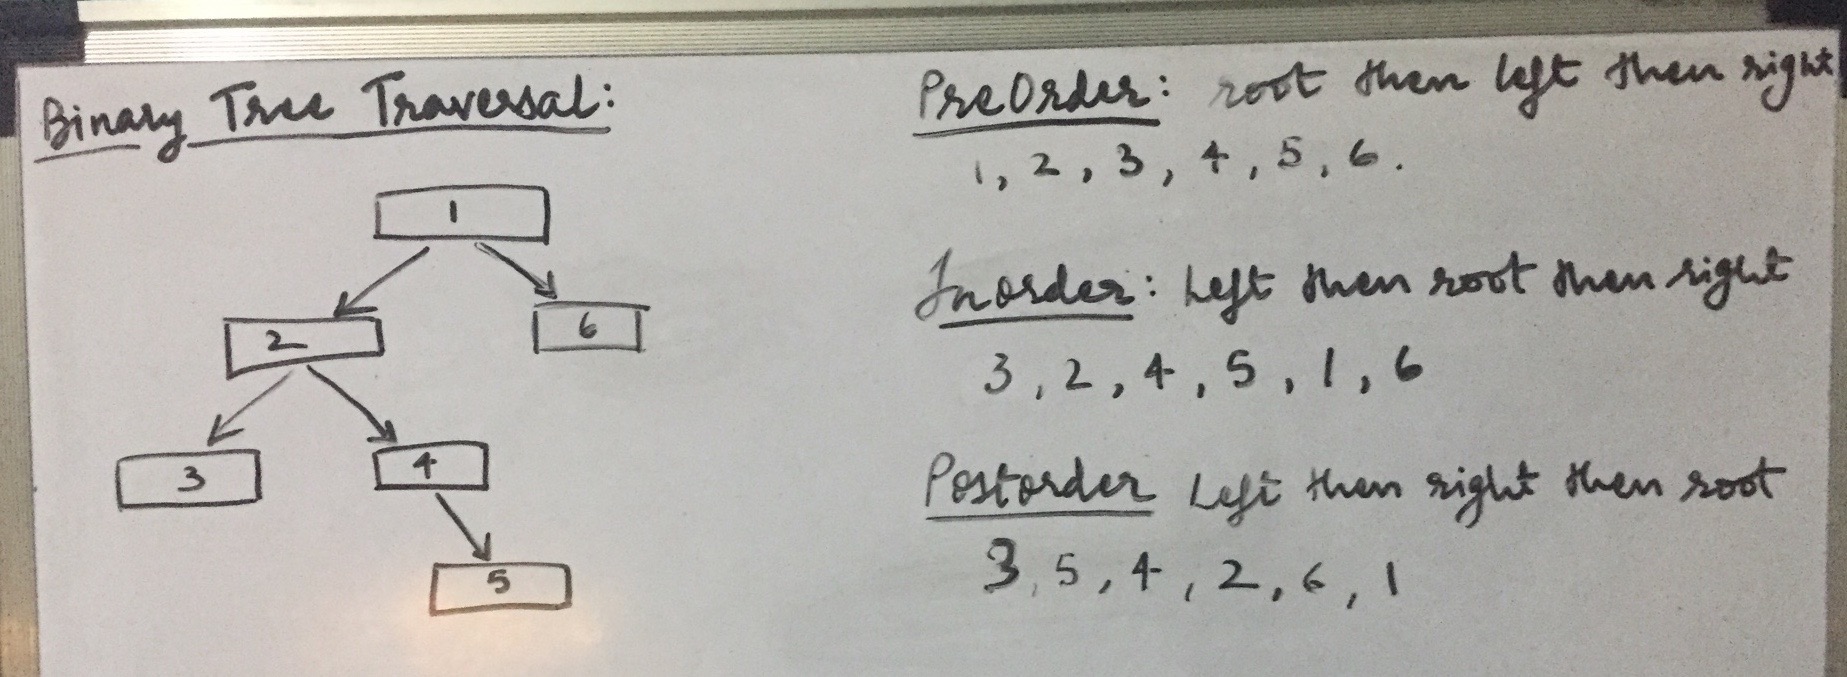 Binary Tree Traversal:
1
2
6
3
4
5
PreOrder: root then left then right
1, 2, 3, 4, 5, 6.
Inorder: Left then root then right
3, 2, 4, 5, 1, 6
Postorder Left then right then root
3, 5, 4, 2, 6, 1